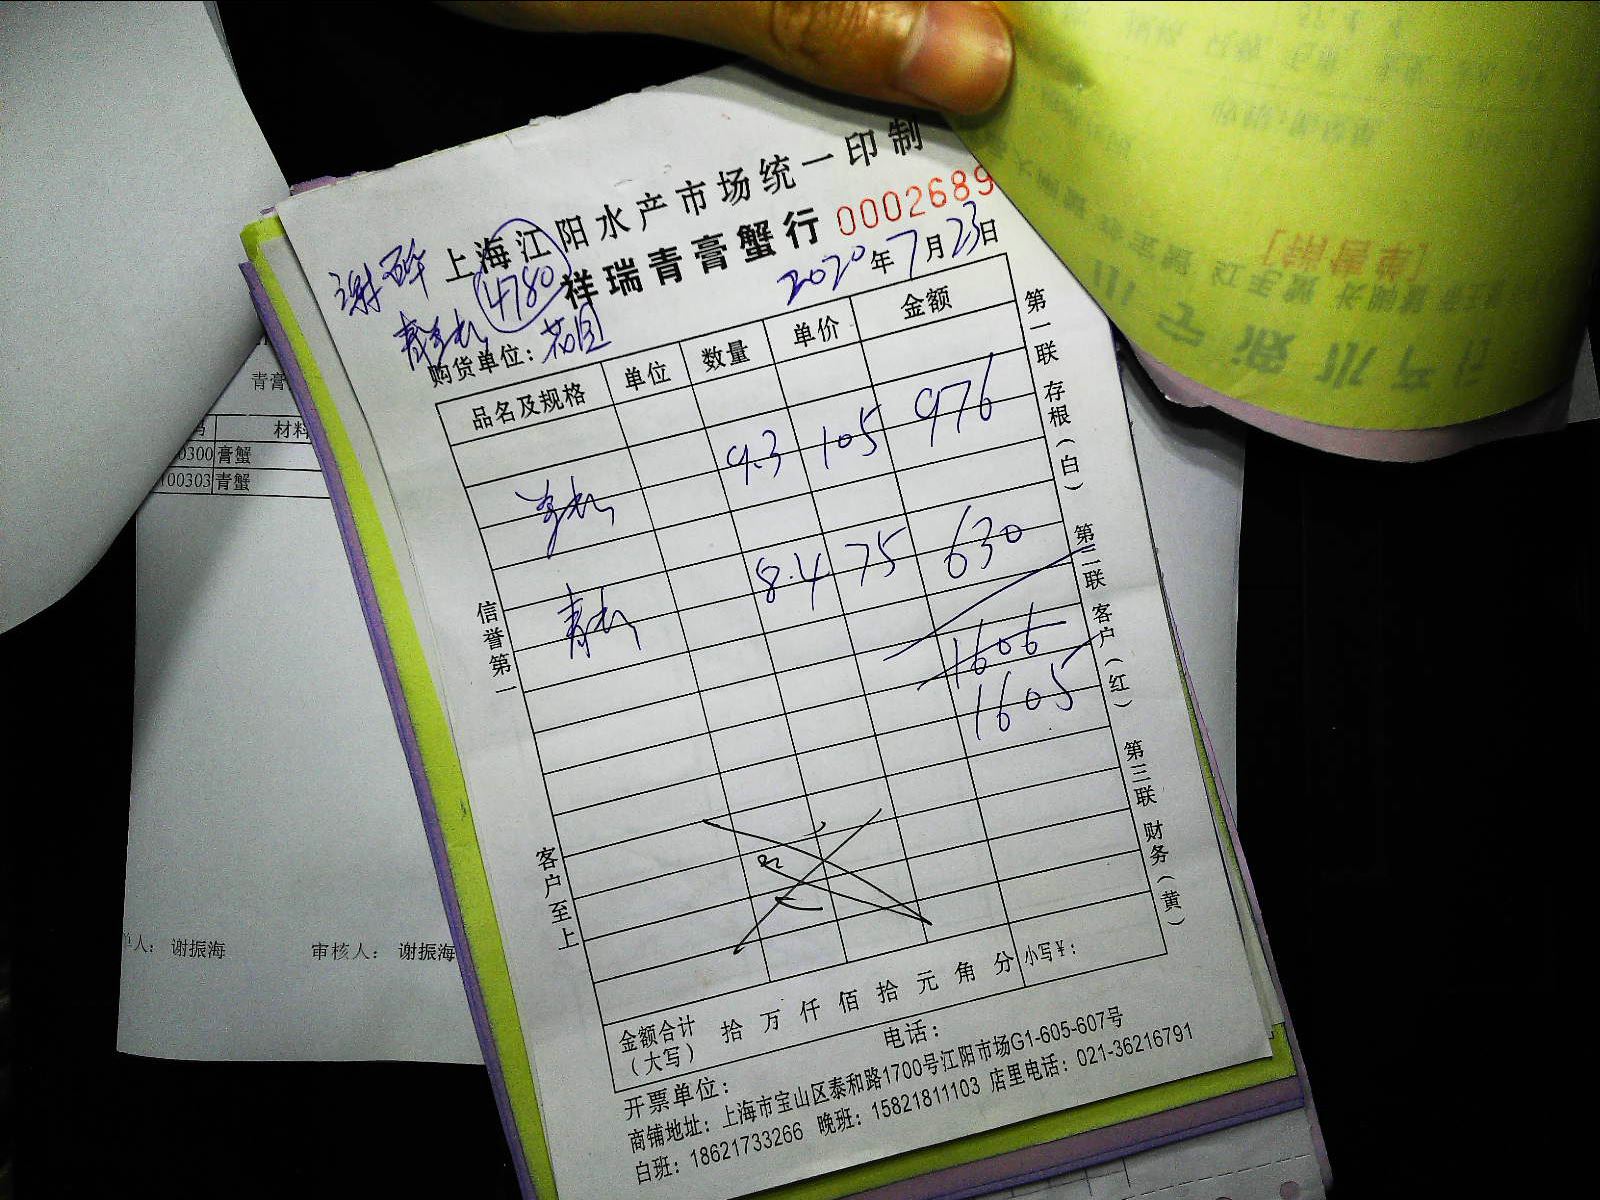 上海江阳水产市场统一印制
祥瑞青膏蟹行 0002689
4780
2020年7月23日
购货单位：花园
品名及规格 单位 数量 单价 金额
膏蟹 9.3 105 976
青蟹 8.4 75 630
1606
1605
金额合计（大写） 拾 万 仟 佰 拾 元 角 分 小写￥：
开票单位： 电话：
商铺地址：上海市宝山区泰和路1700号江阳市场G1-605-607号
白班：18621733266 晚班：15821811103 店里电话：021-36216791
信誉第一
客户至上
第一联 存根（白）
第二联 客户（红）
第三联 财务（黄）
青膏
材料
0300 膏蟹
00303 青蟹
单人：谢振海 审核人：谢振海